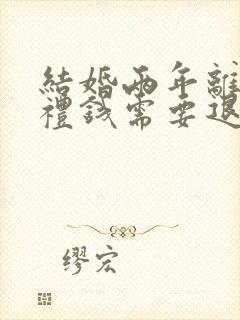 結婚兩年離
禮錢需要退
缪宏